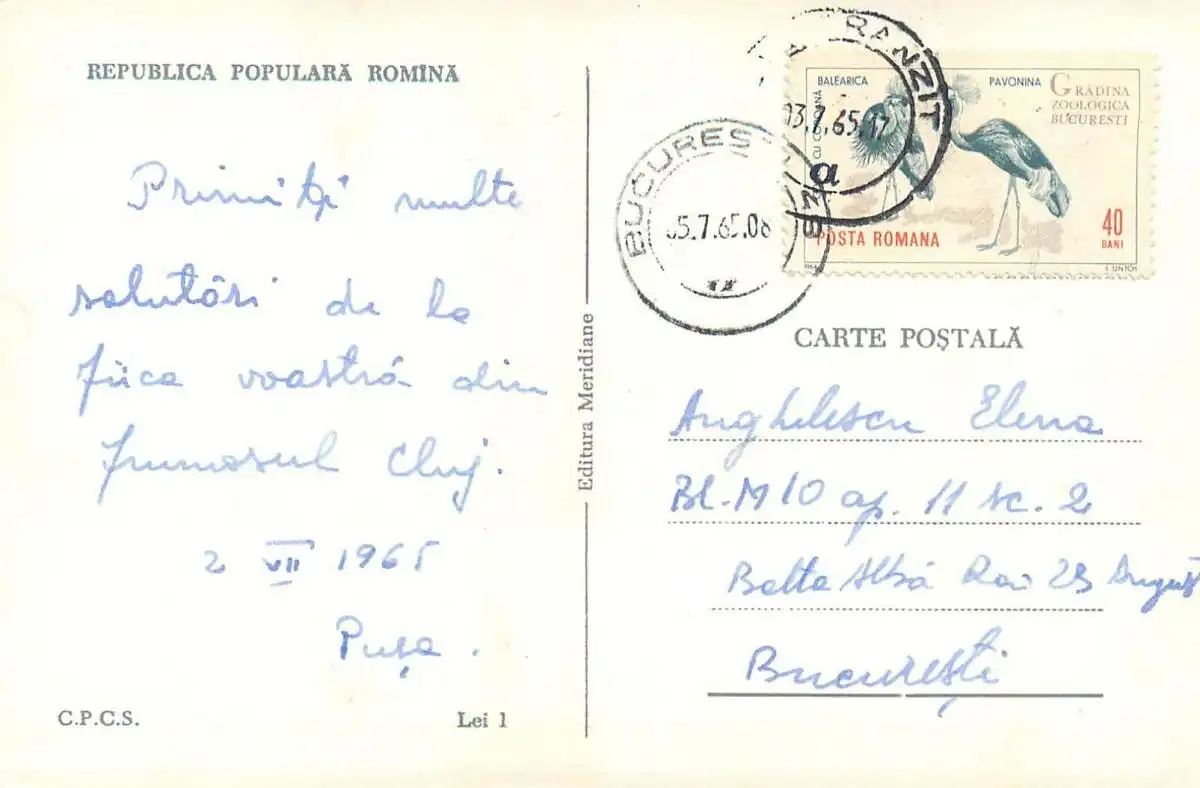 REPUBLICA POPULARĂ ROMÎNĂ
Primiți multe
salutări de la
fiica voastră din
frumosul Cluj.
2 VII 1965
Pușa.
C.P.C.S.
Lei 1
Editura Meridiane
RANZIT
03.7.65.17
a
BUCUREȘTI
05.7.65.08
BALEARICA
PAVONINA
GRĂDINA
ZOOLOGICA
BUCURESTI
POSTA ROMANA
40
BANI
1964
I. UNTCH
CARTE POȘTALĂ
Anghelescu Elena
Bl. M10 ap. 11 sc. 2
Balta Albă Rai 23 August
București